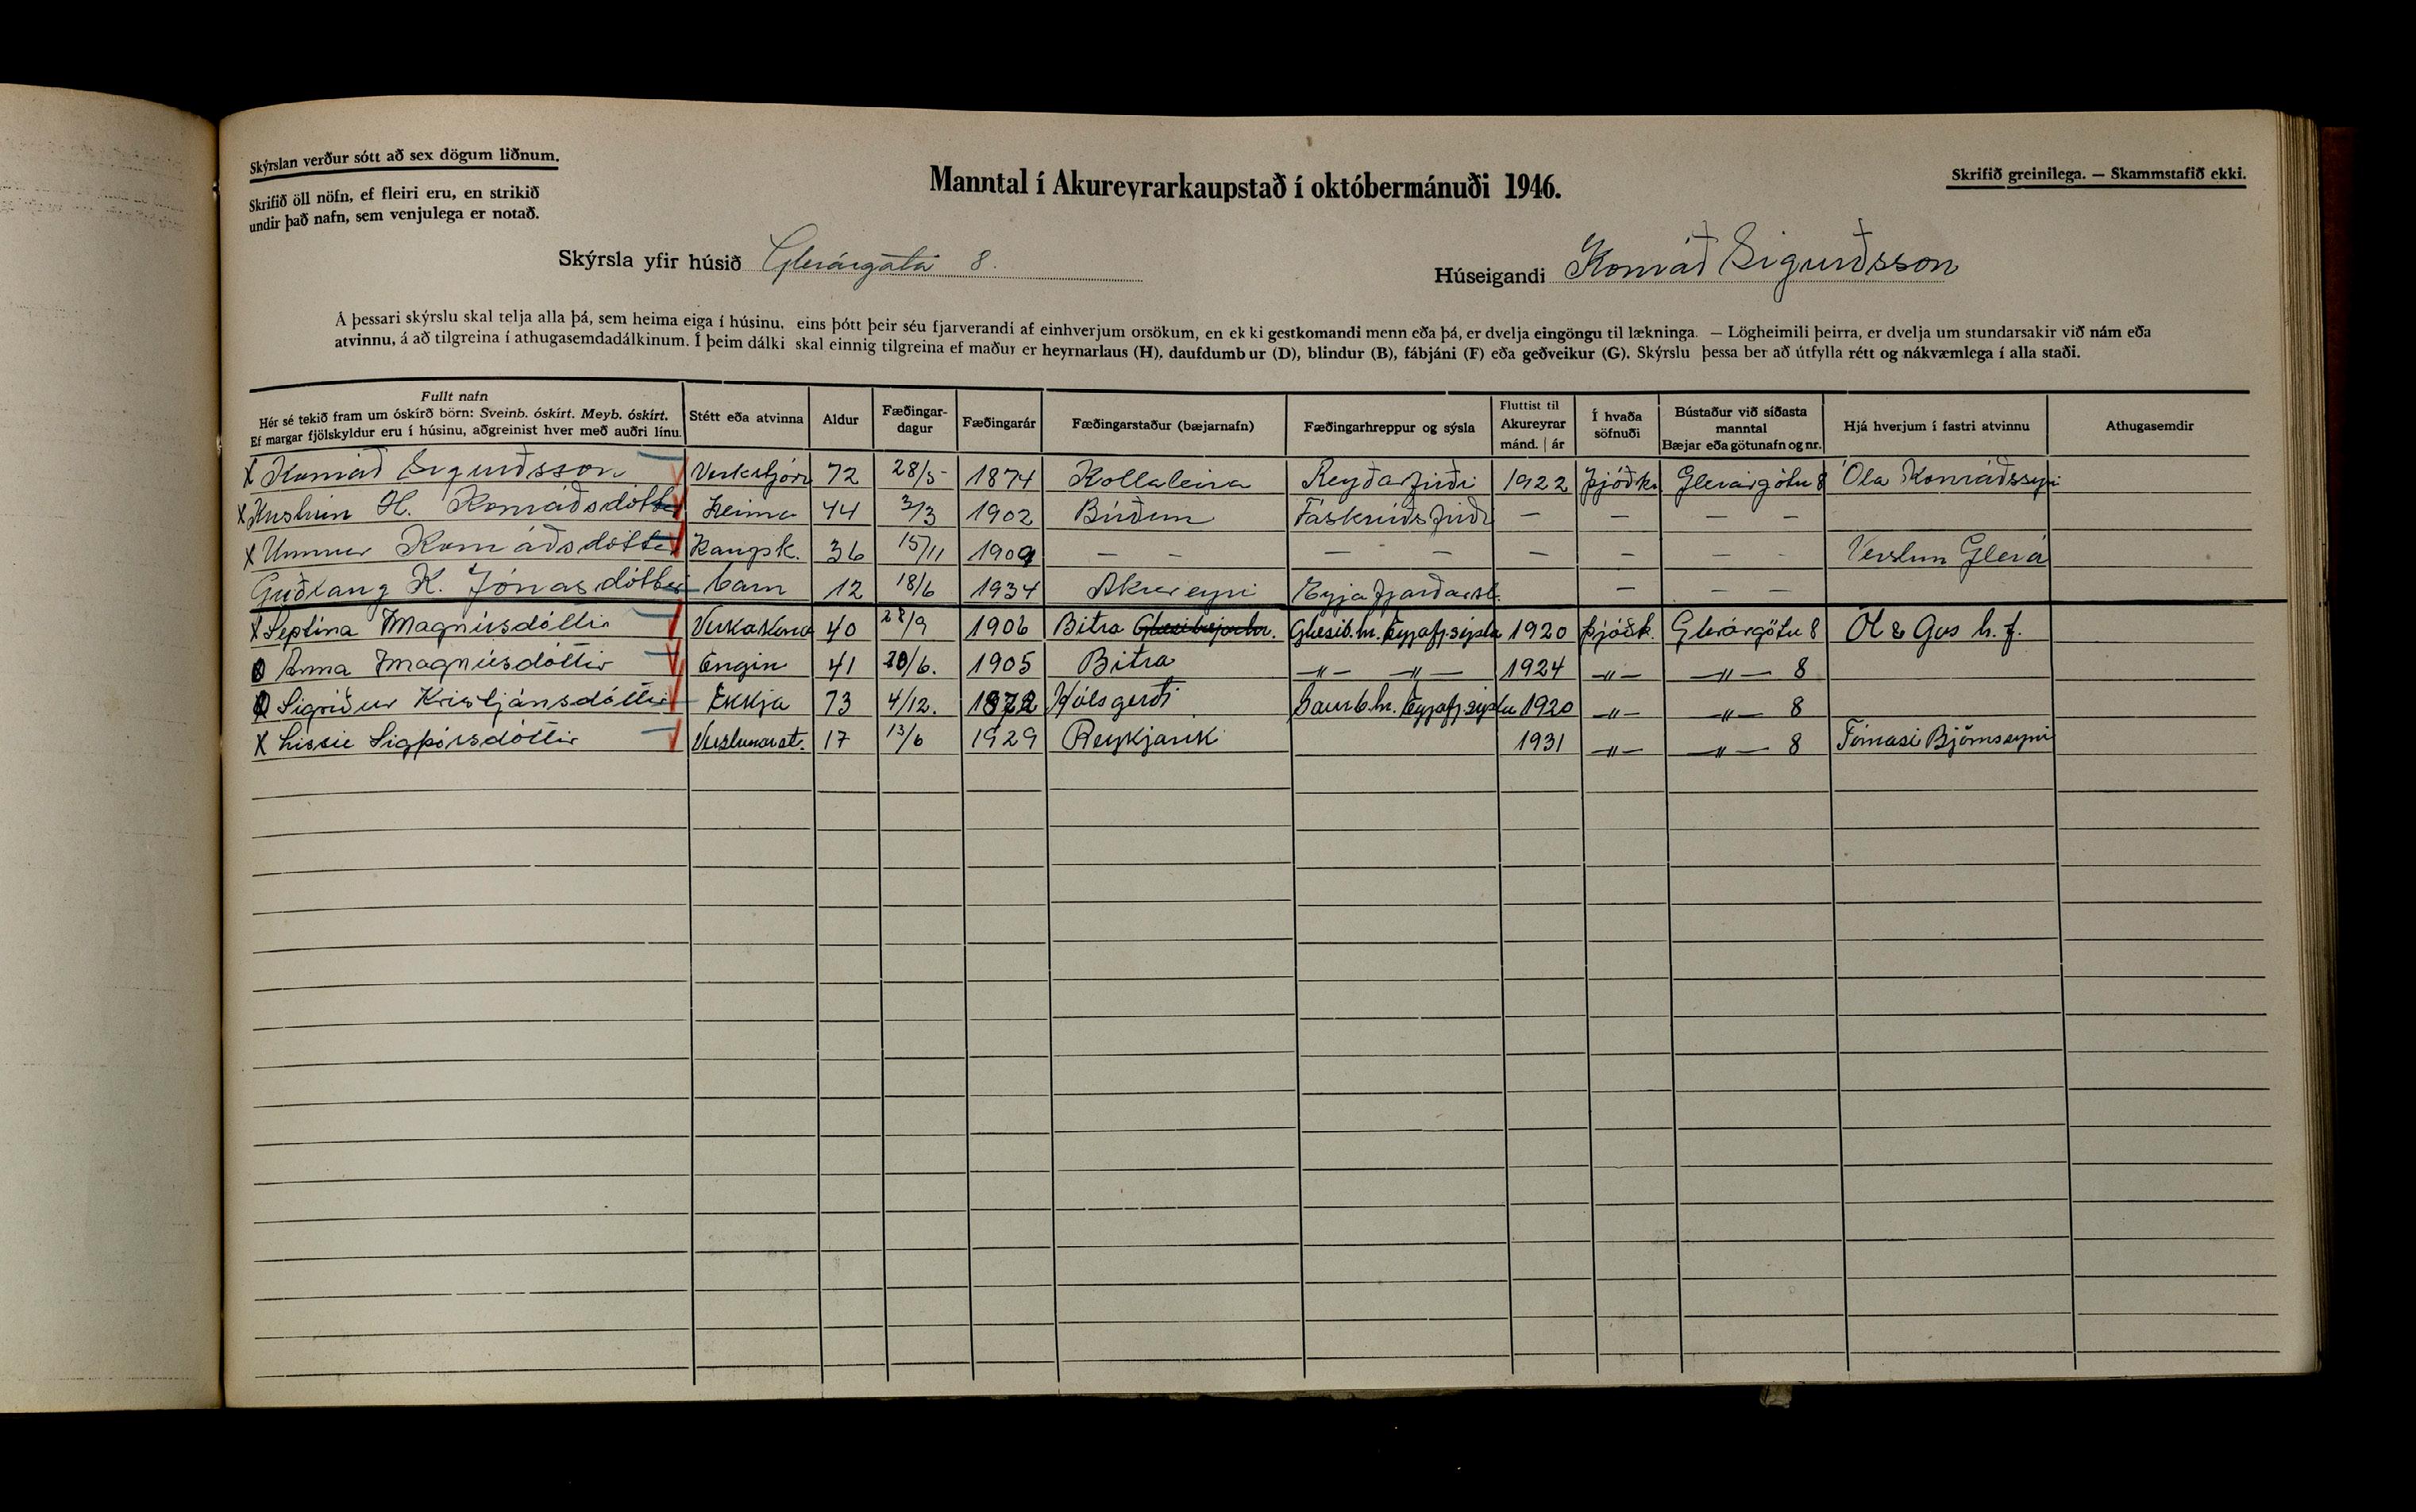 Skýrslan verður sótt að sex dögum liðnum.
Skrifið öll nöfn, ef fleiri eru, en strikið
undir það nafn, sem venjulega er notað.
Manntal í Akureyrarkaupstað í októbermánuði 1946.
Skrifið greinilega. — Skammstafið ekki.
Skýrsla yfir húsið Glerárgata 8.
Húseigandi Konráð Sigurðsson
Á þessari skýrslu skal telja alla þá, sem heima eiga í húsinu, eins þótt þeir séu fjarverandi af einhverjum orsökum, en ekki gestkomandi menn eða þá, er dvelja eingöngu til lækninga. — Lögheimili þeirra, er dvelja um stundarsakir við nám eða
atvinnu, á að tilgreina í athugasemdadálkinum. Í þeim dálki skal einnig tilgreina ef maður er heyrnarlaus (H), daufdumbur (D), blindur (B), fábjáni (F) eða geðveikur (G). Skýrslu þessa ber að útfylla rétt og nákvæmlega í alla staði.
Fullt nafn
Hér sé tekið fram um óskírð börn: Sveinb. óskírt. Meyb. óskírt.
Ef margar fjölskyldur eru í húsinu, aðgreinist hver með auðri línu.
Stétt eða atvinna
Aldur
Fæðingar-
dagur
Fæðingarár
Fæðingarstaður (bæjarnafn)
Fæðingarhreppur og sýsla
Fluttist til
Akureyrar
mánd. | ár
Í hvaða
söfnuði
Bústaður við síðasta
manntal
Bæjar eða götunafn og nr.
Hjá hverjum í fastri atvinnu
Athugasemdir
X Konráð Sigurðsson Verkstjóri 72 28/5 1874 Kollaleira Reyðarfirði 1922 Þjóðk. Glerárgötu 8 Óla Konráðssyni
X H. Konráðsdóttir Heima 44 3/3 1902 Búðum Fáskrúðsfirði — — — —
X Unnur Konráðsdóttir Kaupsk. 36 15/11 1909 — — — — — — — — Verslun Glerá
Guðlaug K. Jónasdóttir barn 12 18/6 1934 Akureyri Eyjafjarðars. — — —
X Septína Magnúsdóttir Verkakona 40 28/9 1906 Bitra Glæsib.hr. Eyjafj.sýsla 1920 Þjóðk. Glerárgötu 8 Öl & Gos h.f.
Anna Magnúsdóttir Engin 41 20/6. 1905 Bitra —〃— —〃— 1924 —〃— —〃— 8
Sigríður Kristjánsdóttir Ekkja 73 4/12. 1872 Hólsgerði Saurb.hr. Eyjafj.sýslu 1920 —〃— —〃— 8
X Lissie Sigþórsdóttir Verslunarst. 17 13/6 1929 Reykjavík 1931 —〃— —〃— 8 Tómasi Björnssyni